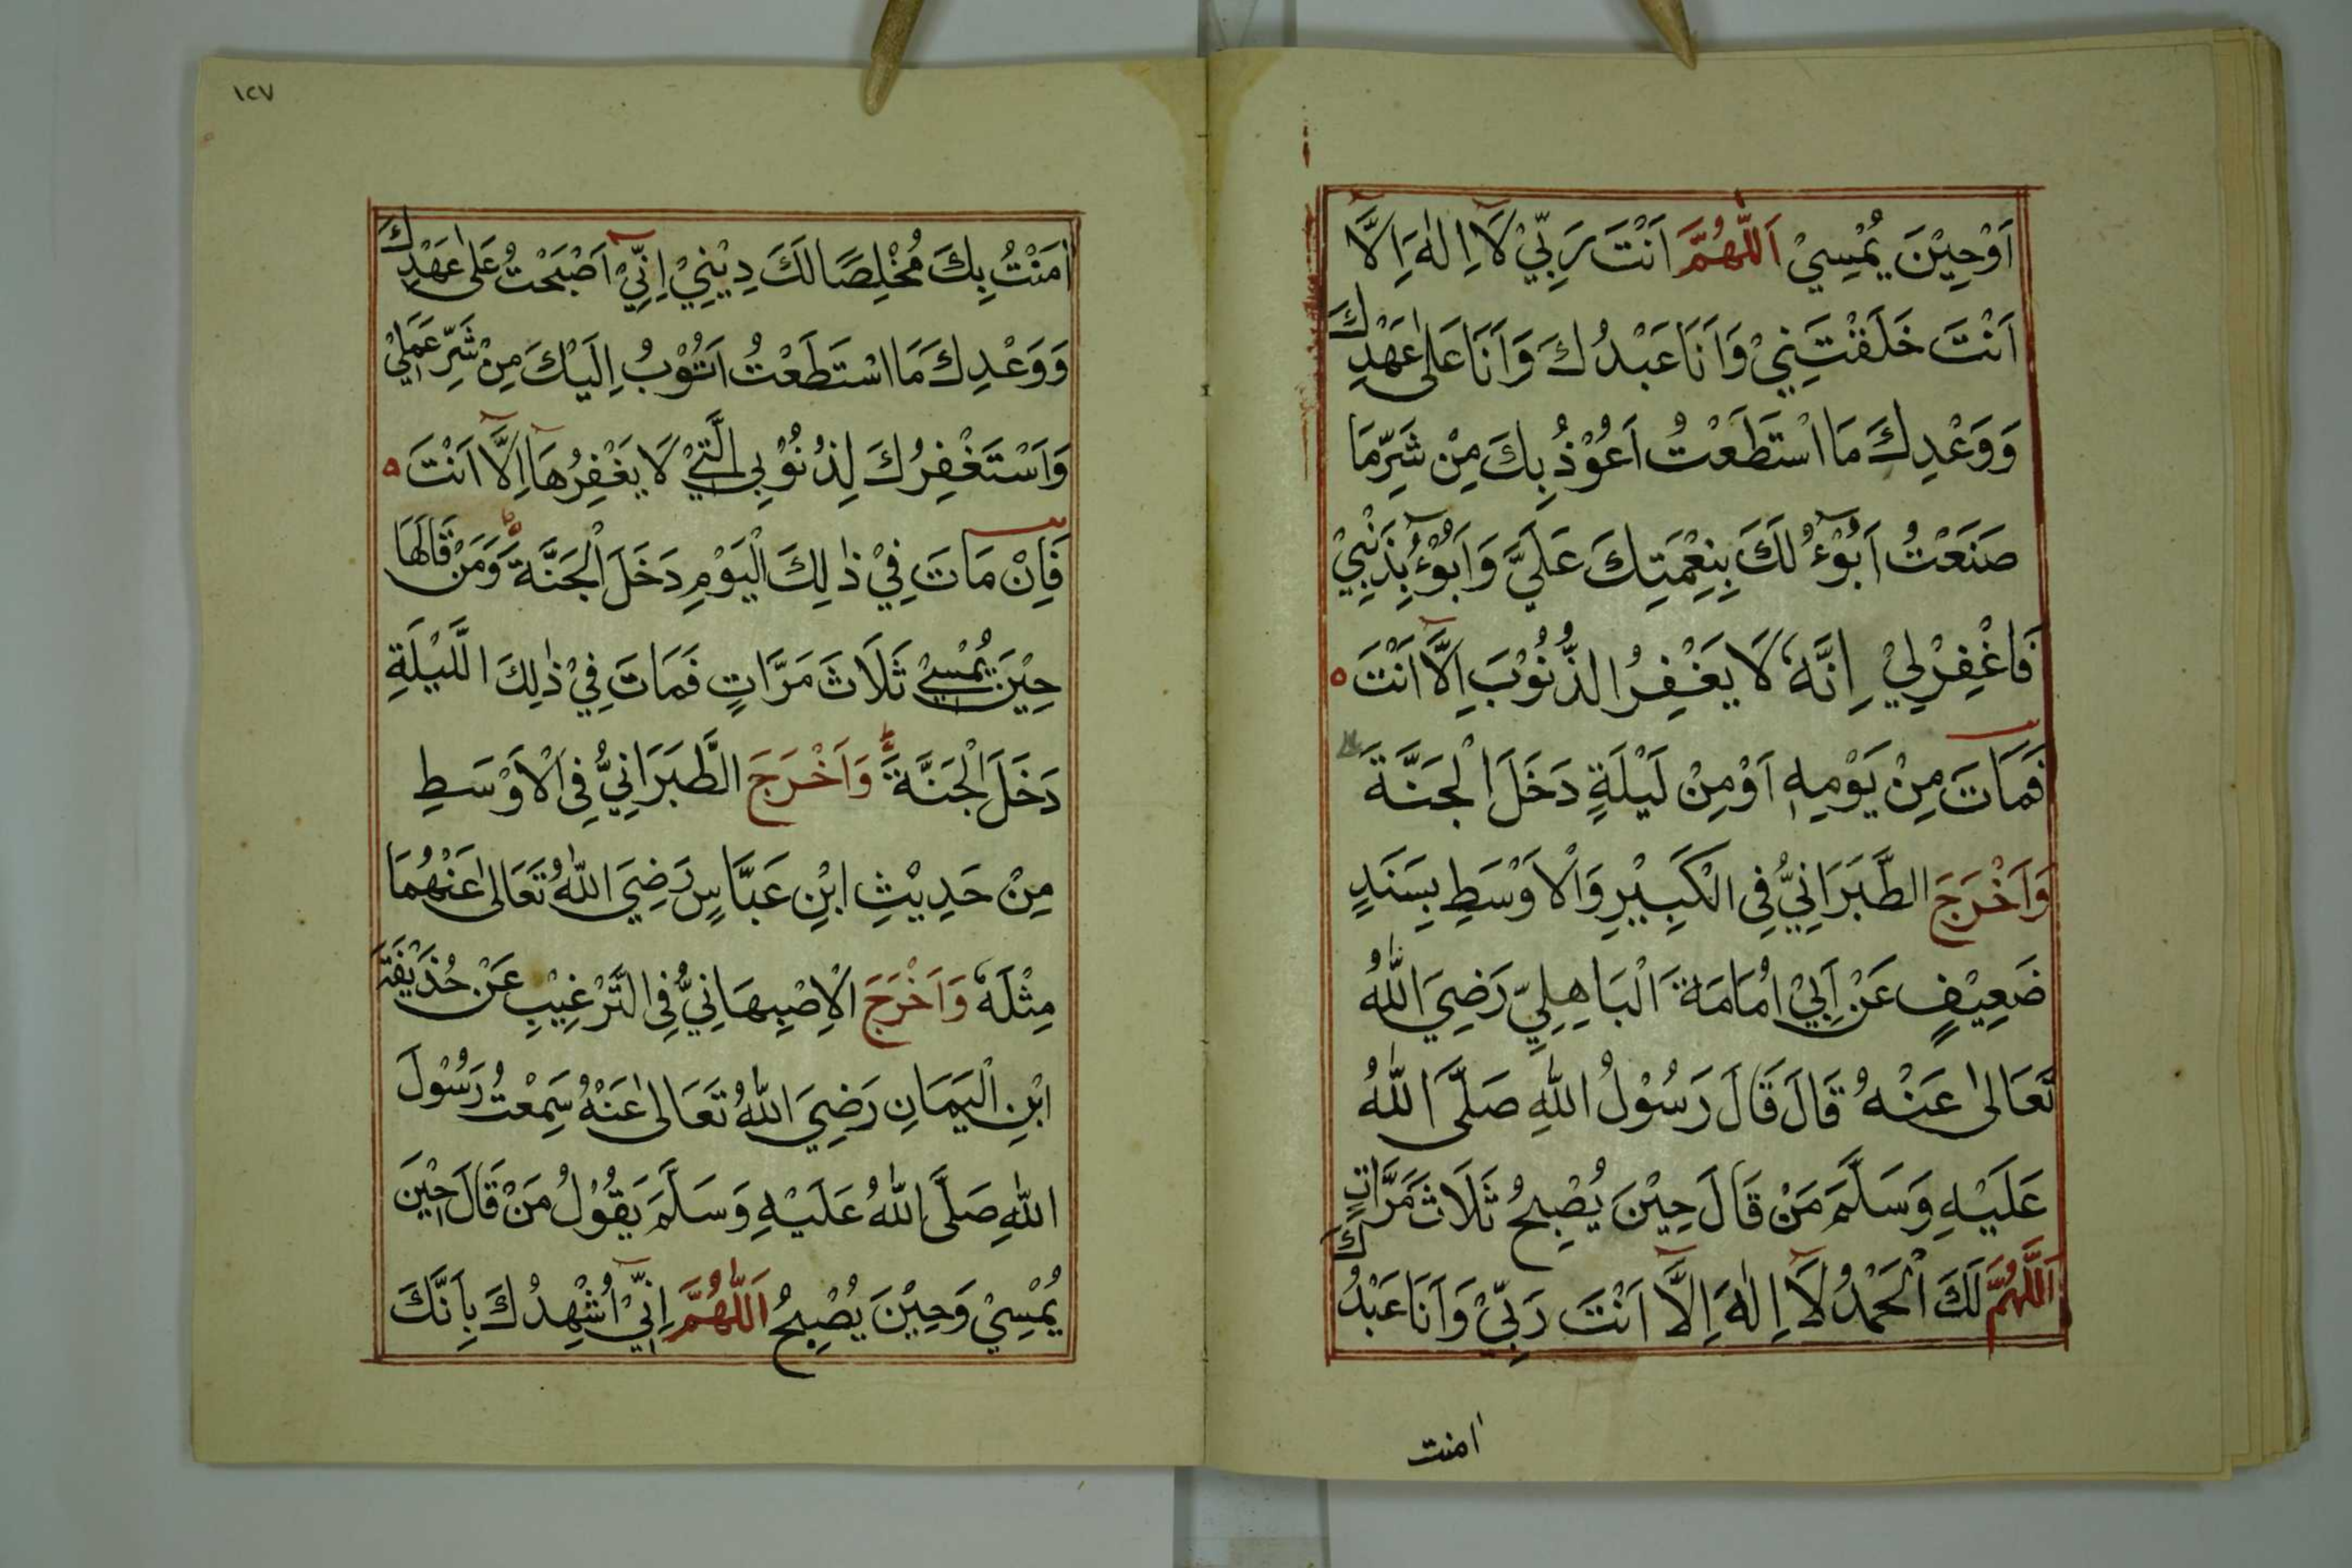 اَوْحِيْنَ يُمْسِيْ اَللّٰهُمَّ اَنْتَ رَبِّيْ لَا اِلٰهَ اِلَّا
اَنْتَ خَلَقْتَنِيْ وَاَنَا عَبْدُكَ وَاَنَا عَلٰى عَهْدِكَ
وَوَعْدِكَ مَا اسْتَطَعْتُ اَعُوْذُ بِكَ مِنْ شَرِّ مَا
صَنَعْتُ اَبُوْءُ لَكَ بِنِعْمَتِكَ عَلَيَّ وَاَبُوْءُ بِذَنْبِيْ
فَاغْفِرْلِيْ اِنَّهٗ لَا يَغْفِرُ الذُّنُوْبَ اِلَّا اَنْتَ ه
فَمَاتَ مِنْ يَوْمِهٖ اَوْ مِنْ لَيْلَةٍ دَخَلَ الْجَنَّةَ
وَاَخْرَجَ الطَّبَرَانِيُّ فِى الْكَبِيْرِ وَالْاَوْسَطِ بِسَنَدٍ
ضَعِيْفٍ عَنْ اَبِيْ اُمَامَةَ الْبَاهِلِيِّ رَضِيَ اللّٰهُ
تَعَالٰى عَنْهُ قَالَ قَالَ رَسُوْلُ اللّٰهِ صَلَّى اللّٰهُ
عَلَيْهِ وَسَلَّمَ مَنْ قَالَ حِيْنَ يُصْبِحُ ثَلَاثَ مَرَّاتٍ
اَللّٰهُمَّ لَكَ الْحَمْدُ لَا اِلٰهَ اِلَّا اَنْتَ رَبِّيْ وَاَنَا عَبْدُكَ
امنت
١٢٧
اٰمَنْتُ بِكَ مُخْلِصًا لَكَ دِيْنِيْ اِنِّيْ اَصْبَحْتُ عَلٰى عَهْدِكَ
وَوَعْدِكَ مَا اسْتَطَعْتُ اَتُوْبُ اِلَيْكَ مِنْ شَرِّ عَمَلِيْ
وَاَسْتَغْفِرُكَ لِذُنُوْبِى الَّتِيْ لَا يَغْفِرُهَا اِلَّا اَنْتَ ه
فَاِنْ مَاتَ فِيْ ذٰلِكَ الْيَوْمِ دَخَلَ الْجَنَّةَ وَمَنْ قَالَهَا
حِيْنَ يُمْسِيْ ثَلَاثَ مَرَّاتٍ فَمَاتَ فِيْ ذٰلِكَ اللَّيْلَةِ
دَخَلَ الْجَنَّةَ وَاَخْرَجَ الطَّبَرَانِيُّ فِى الْاَوْسَطِ
مِنْ حَدِيْثِ ابْنِ عَبَّاسٍ رَضِيَ اللّٰهُ تَعَالٰى عَنْهُمَا
مِثْلَهٗ وَاَخْرَجَ الْاِصْبِهَانِيُّ فِى التَّرْغِيْبِ عَنْ حُذَيْفَةَ
ابْنِ الْيَمَانِ رَضِيَ اللّٰهُ تَعَالٰى عَنْهُ سَمِعْتُ رَسُوْلَ
اللّٰهِ صَلَّى اللّٰهُ عَلَيْهِ وَسَلَّمَ يَقُوْلُ مَنْ قَالَ حِيْنَ
يُمْسِيْ وَحِيْنَ يُصْبِحُ اَللّٰهُمَّ اِنِّيْ اُشْهِدُكَ بِاَنَّكَ